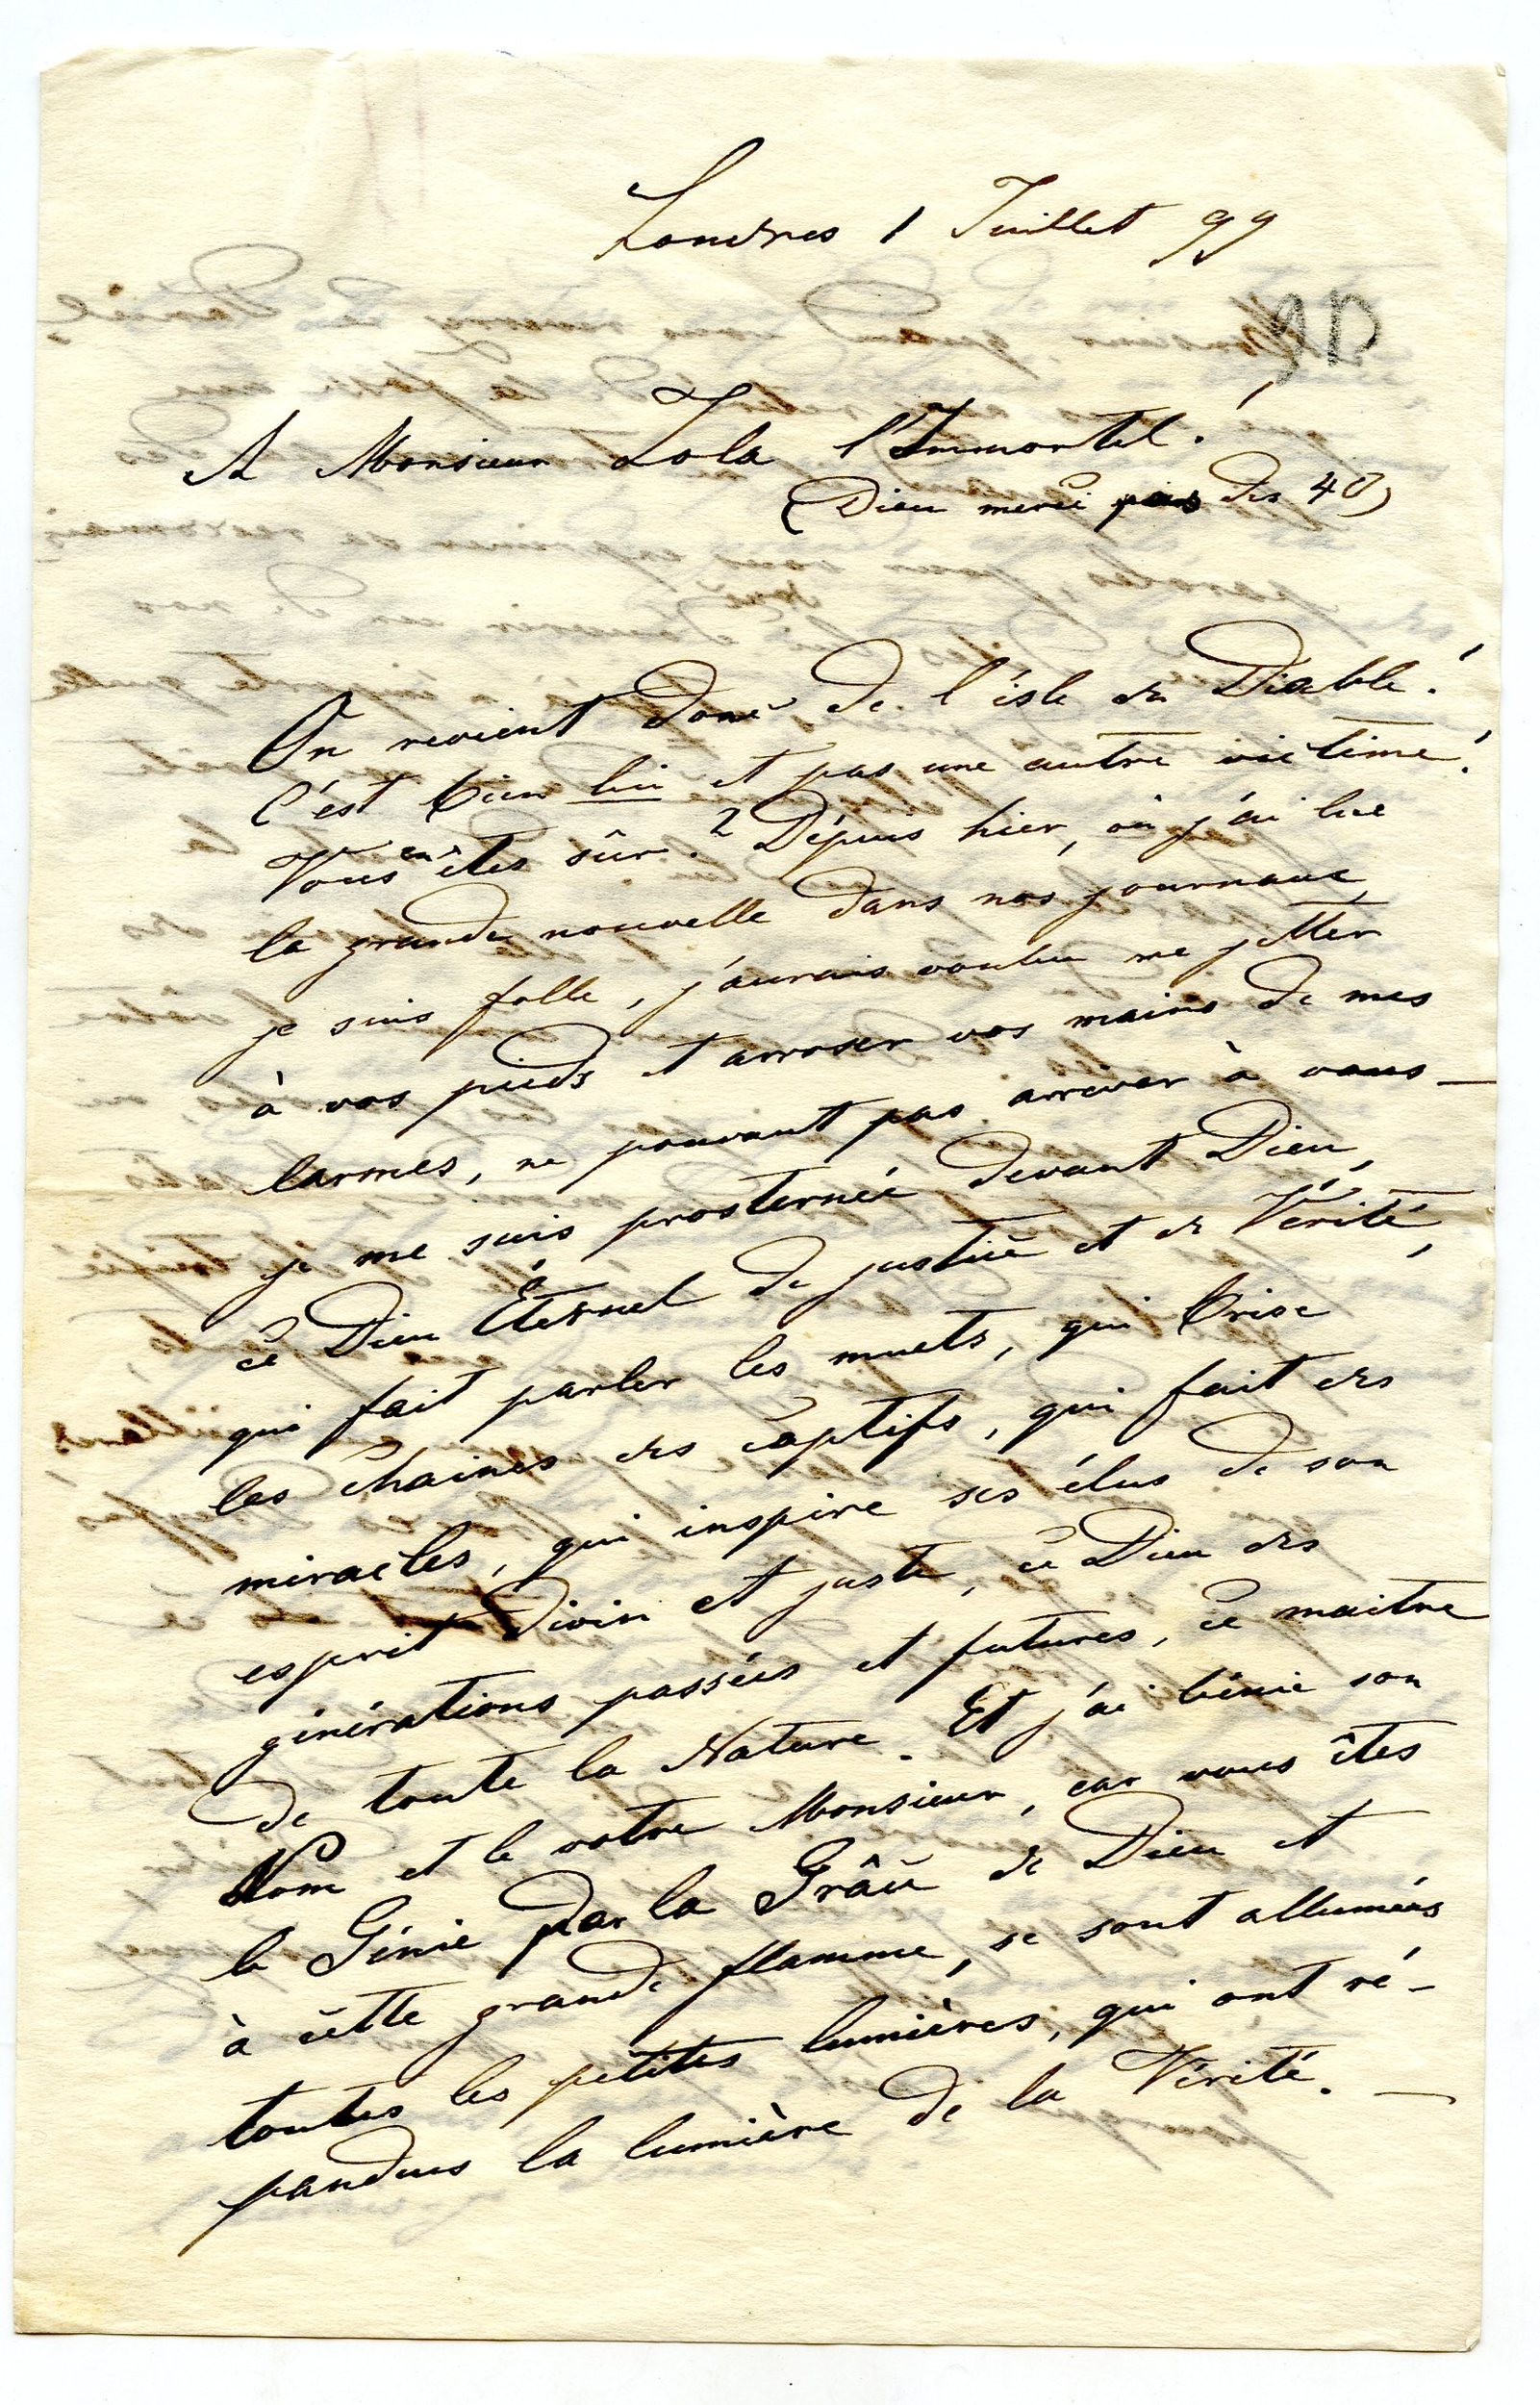 Londres 1 Juillet 99
A Monsieur Zola l'Immortel!
(Dieu merci pas des 40)
On revient donc de l'isle du Diable!
C'est bien lui et pas une autre victime!
Vous en êtes sûr? Dépuis hier, où j'ai lue
la grande nouvelle dans nos journaux,
je suis folle, j'aurais voulu me jetter
à vos pieds et arroser vos mains de mes
larmes, ne pouvant pas arriver à vous —
je me suis prosternée devant Dieu,
ce Dieu Éternel de justice et de Vérité,
qui fait parler les muets, qui brise
les chaines des captifs, qui fait des
miracles, qui inspire ses élus de son
esprit divin et juste, ce Dieu des
générations passées et futures, ce maitre
de toute la Nature. Et j'ai bénie son
Nom et le votre Monsieur, car vous êtes
le Génie par la Grâce de Dieu et
à cette grande flamme, se sont allumées
toutes les petites lumières, qui ont ré-
pandues la lumière de la Vérité. —